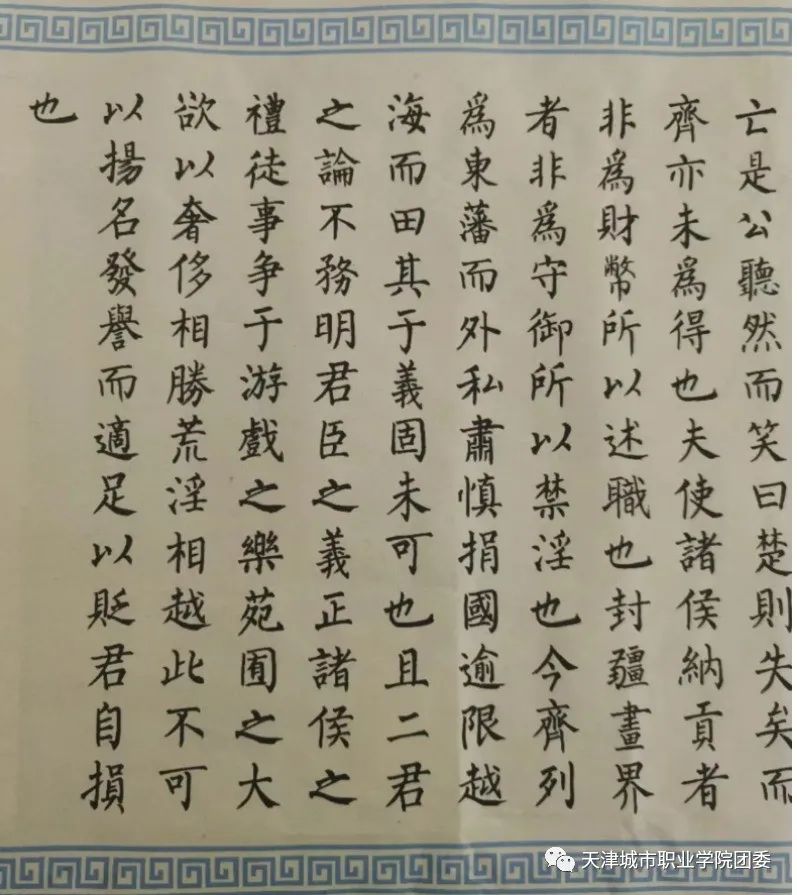 亡是公聽然而笑曰楚則失矣而
齊亦未爲得也夫使諸侯納貢者
非爲財幣所以述職也封疆畫界
者非爲守御所以禁淫也今齊列
爲東藩而外私肅慎捐國逾限越
海而田其于義固未可也且二君
之論不務明君臣之義正諸侯之
禮徒事争于游戲之樂苑囿之大
欲以奢侈相勝荒淫相越此不可
以揚名發譽而適足以貶君自損
也
天津城市职业学院团委